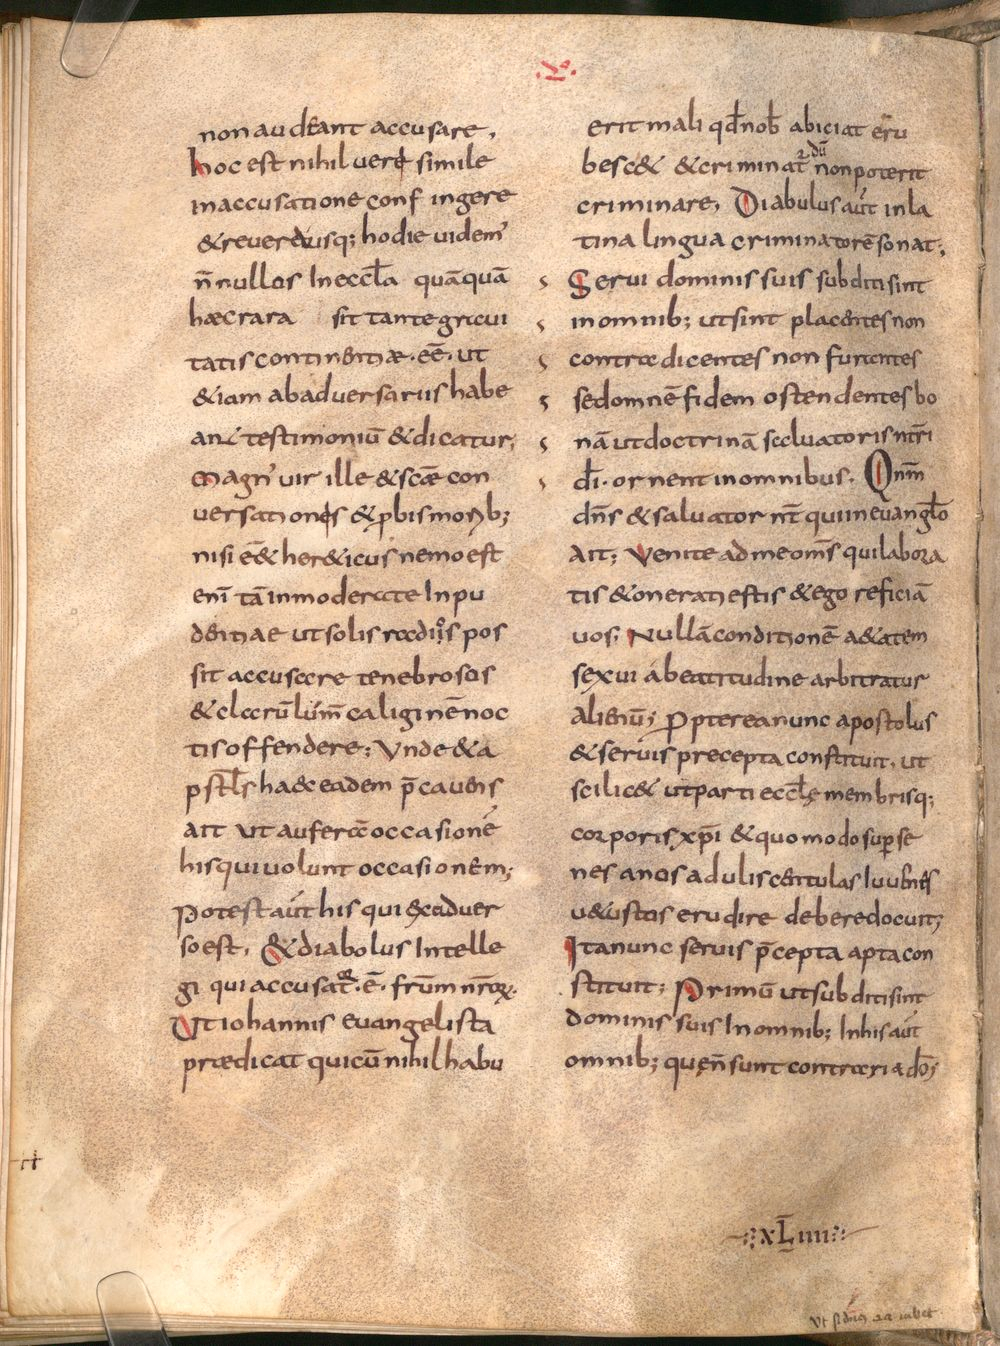 non audeant accusare,
hoc est nihil uere simile
in accusatione confingere
& reuera usq; hodie uidem᾽
n̄nullos In eccl̄a quāquā
haec rara sit tante graui
tatis continentiæ · eē · ut
& iam ab aduersariis habe
ant testimoniū & dicatur,
magn᾽ uir ille & scāe con
uersationes & ꝓbis morib;
nisi eē& her&icus nemo est
eni᾽ tā inmoderate In pu
dentiae ut solis radiis pos
sit accusare tenebrosos
& clarū lum̄ caliginē noc
tis offendere; Vnde & a
postl̄s haec eadem p̄cauens
ait ut auferā occasionē
his qui uolunt occasionem;
Potest aūt his qui ex aduer
so est, & diabolus Intelle
gi qui accusat᾽ · ē · fr̄um nr̄orꝝ.
Ut iohannis euangelista
prædicat qui cū nihil habu
erit mali qd̄ nob̄ abiciat eru
besc& & criminat᾽ dū non poterit
criminare, Diabulus aūt in la
tina lingua criminatorē sonat;
Serui dominis suis subditi sint
in omnib; ut sint placentes non
contradicentes non furantes
sed omnē fidem ostendentes bo
nā ut doctrinā saluatoris nr̄i
dī · ornent in omnibus. Qnm̄
dn̄s & saluator nr̄ qui in euangl̄o
Ait; Venite ad me om̄s qui labora
tis & onerati estis & ego reficiā
uos; Nullā conditionē a&atem
sexui á beatitudine arbitratur
alienū; Ꝓpterea nunc apostolus
& seruis precepta constituit, ut
scilic& ut parti eccl̄ę membrisq;
corporis xp̄i & quomodo superse
nes anos aduliscentulas Iuuenes
u&ustas erudire debere docuit;
Ita nunc seruis p̄cepta apta con
stituit; Primū ut subditi sint
dominis suis In omnib; In his aūt
omnib; que n̄ sunt contraria dō;
XLIIII